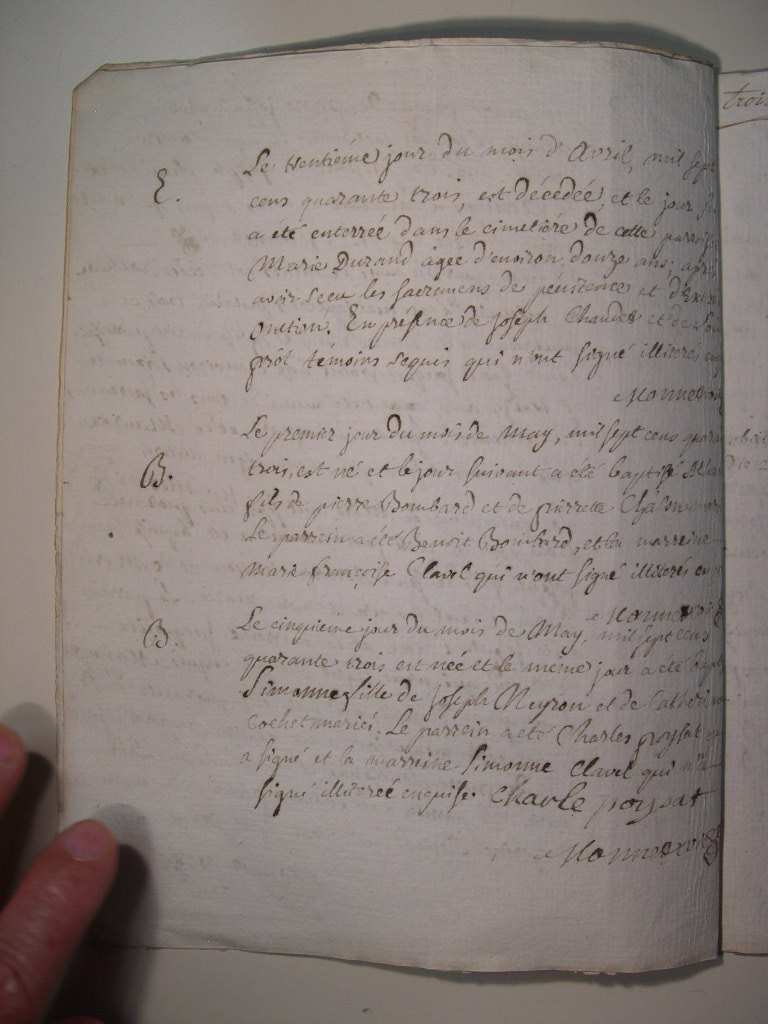 E.
Le trentieme jour du mois d'Avril, mil sept
cens quarante trois, est décédée, et le jour
a été enterrée dans le cimetiére de cette
Marie Durand âgée d'environ douze ans,
avoir recu les sacremens de pénitence et
onction. En présence de Joseph Chaudet et de
témoins requis qui n'ont signé illiterés
Le premier jour du mois de May, mil sept cens
B.
trois, est né et le jour suivant a été baptisé
fils de pierre Bombard et de pierrette
Le parrein a été Benoit Bombard, et la marreine
Marie françoise Clavel qui n'ont signé illiterés
B.
Le cinquieme jour du mois de May, mil sept cens
quarante trois est née et le même jour a été
Simonne fille de Joseph Meyron et de
Cochet mariés. Le parrein a été Charles
a signé et la marreine Simonne Clavel qui
signé illiterée enquise. Charle poysat